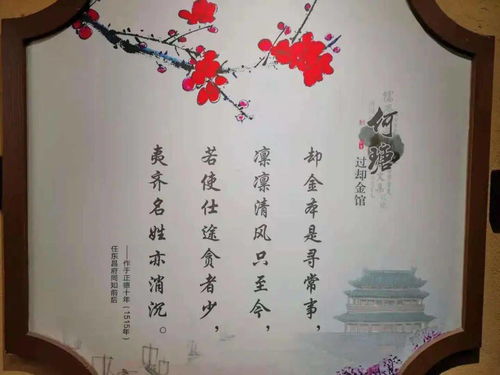 何瑭
过却金馆
却金本是寻常事，
凛凛清风只至今，
若使仕途贪者少，
夷齐名姓亦消沉。
——作于正德十年（1515年）
任东昌府同知前后